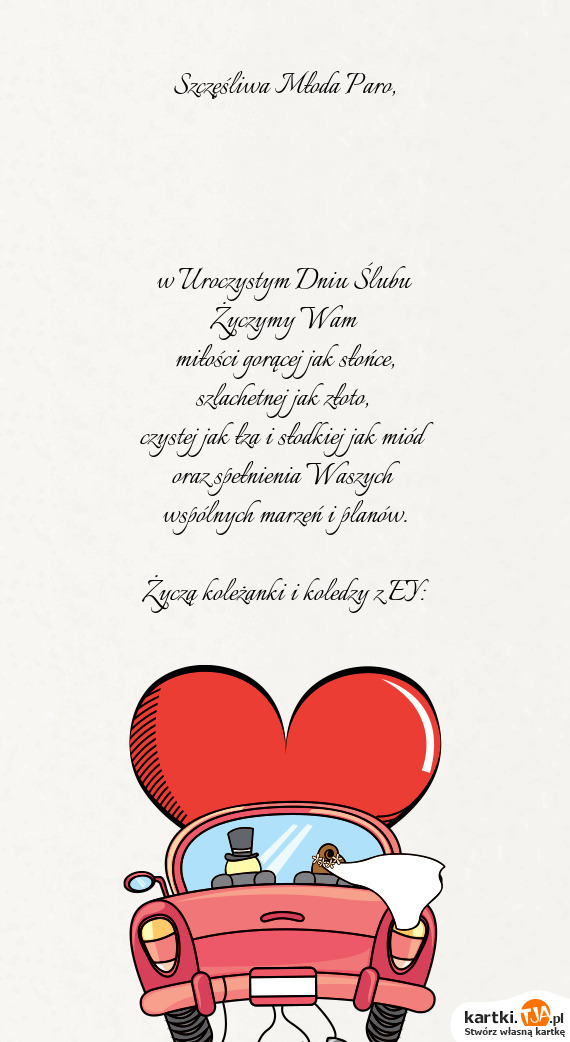 Szczęśliwa Młoda Paro,
w Uroczystym Dniu Ślubu
Życzymy Wam
miłości gorącej jak słońce,
szlachetnej jak złoto,
czystej jak łza i słodkiej jak miód
oraz spełnienia Waszych
wspólnych marzeń i planów.
Życzą koleżanki i koledzy z EY:
kartki.TJA.pl
Stwórz własną kartkę